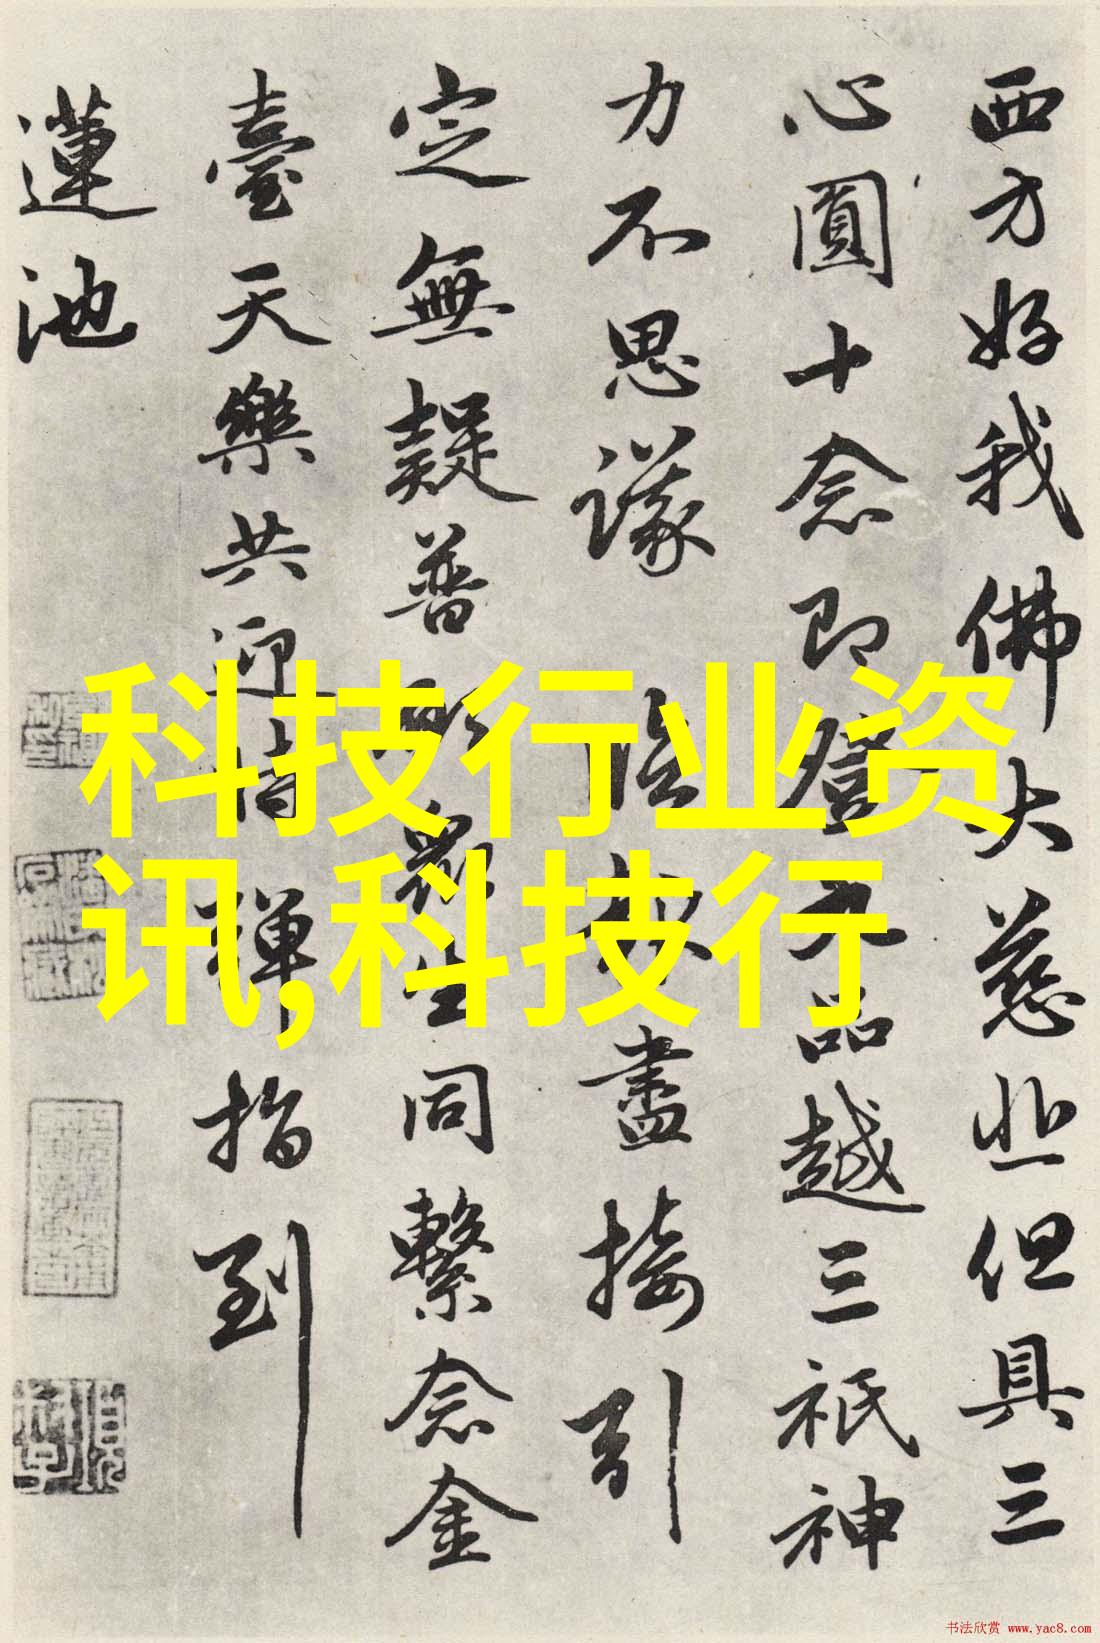 西方好我佛大慈悲但具三
心圓十念即登九品越三祇神
力不思議 臨於盡接引
定無疑普願眾生同繫念金
臺天樂共迎時彈指到
蓮池
科技行业资
讯,科技行
书法欣赏 www.yac8.com